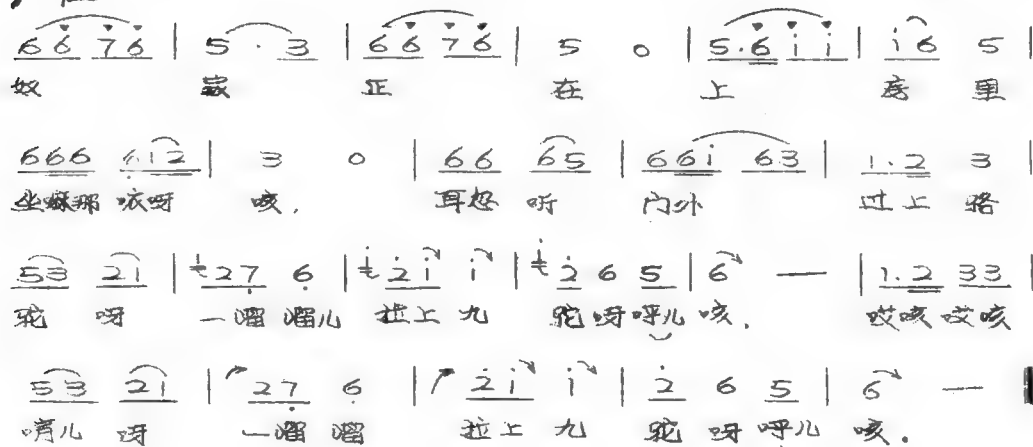 6 6 7 6 | 5 · 3 | 6 6 7 6 | 5 0 | 5·6 i i | i 6 5 |
奴 家 正 在 上 房 里
6 6 6 6 i 2 | 3 0 | 6 6 6 5 | 6 6 i 6 3 | 1.2 3 |
坐嘛那 咳呀 咳, 耳忽 听 门外 过上 骆
5 3 2 1 | 2 7 6 | 2 i i | 2 6 5 | 6 — | 1.2 3 3 |
驼 呀 一溜 溜儿 拉上 九 驼 呀 呼儿 咳. 哎咳 哎咳
5 3 2 1 | 2 7 6 | 2 i i | 2 6 5 | 6 —
唷儿 呀 一溜 溜 拉上 九 驼 呀 呼儿 咳.